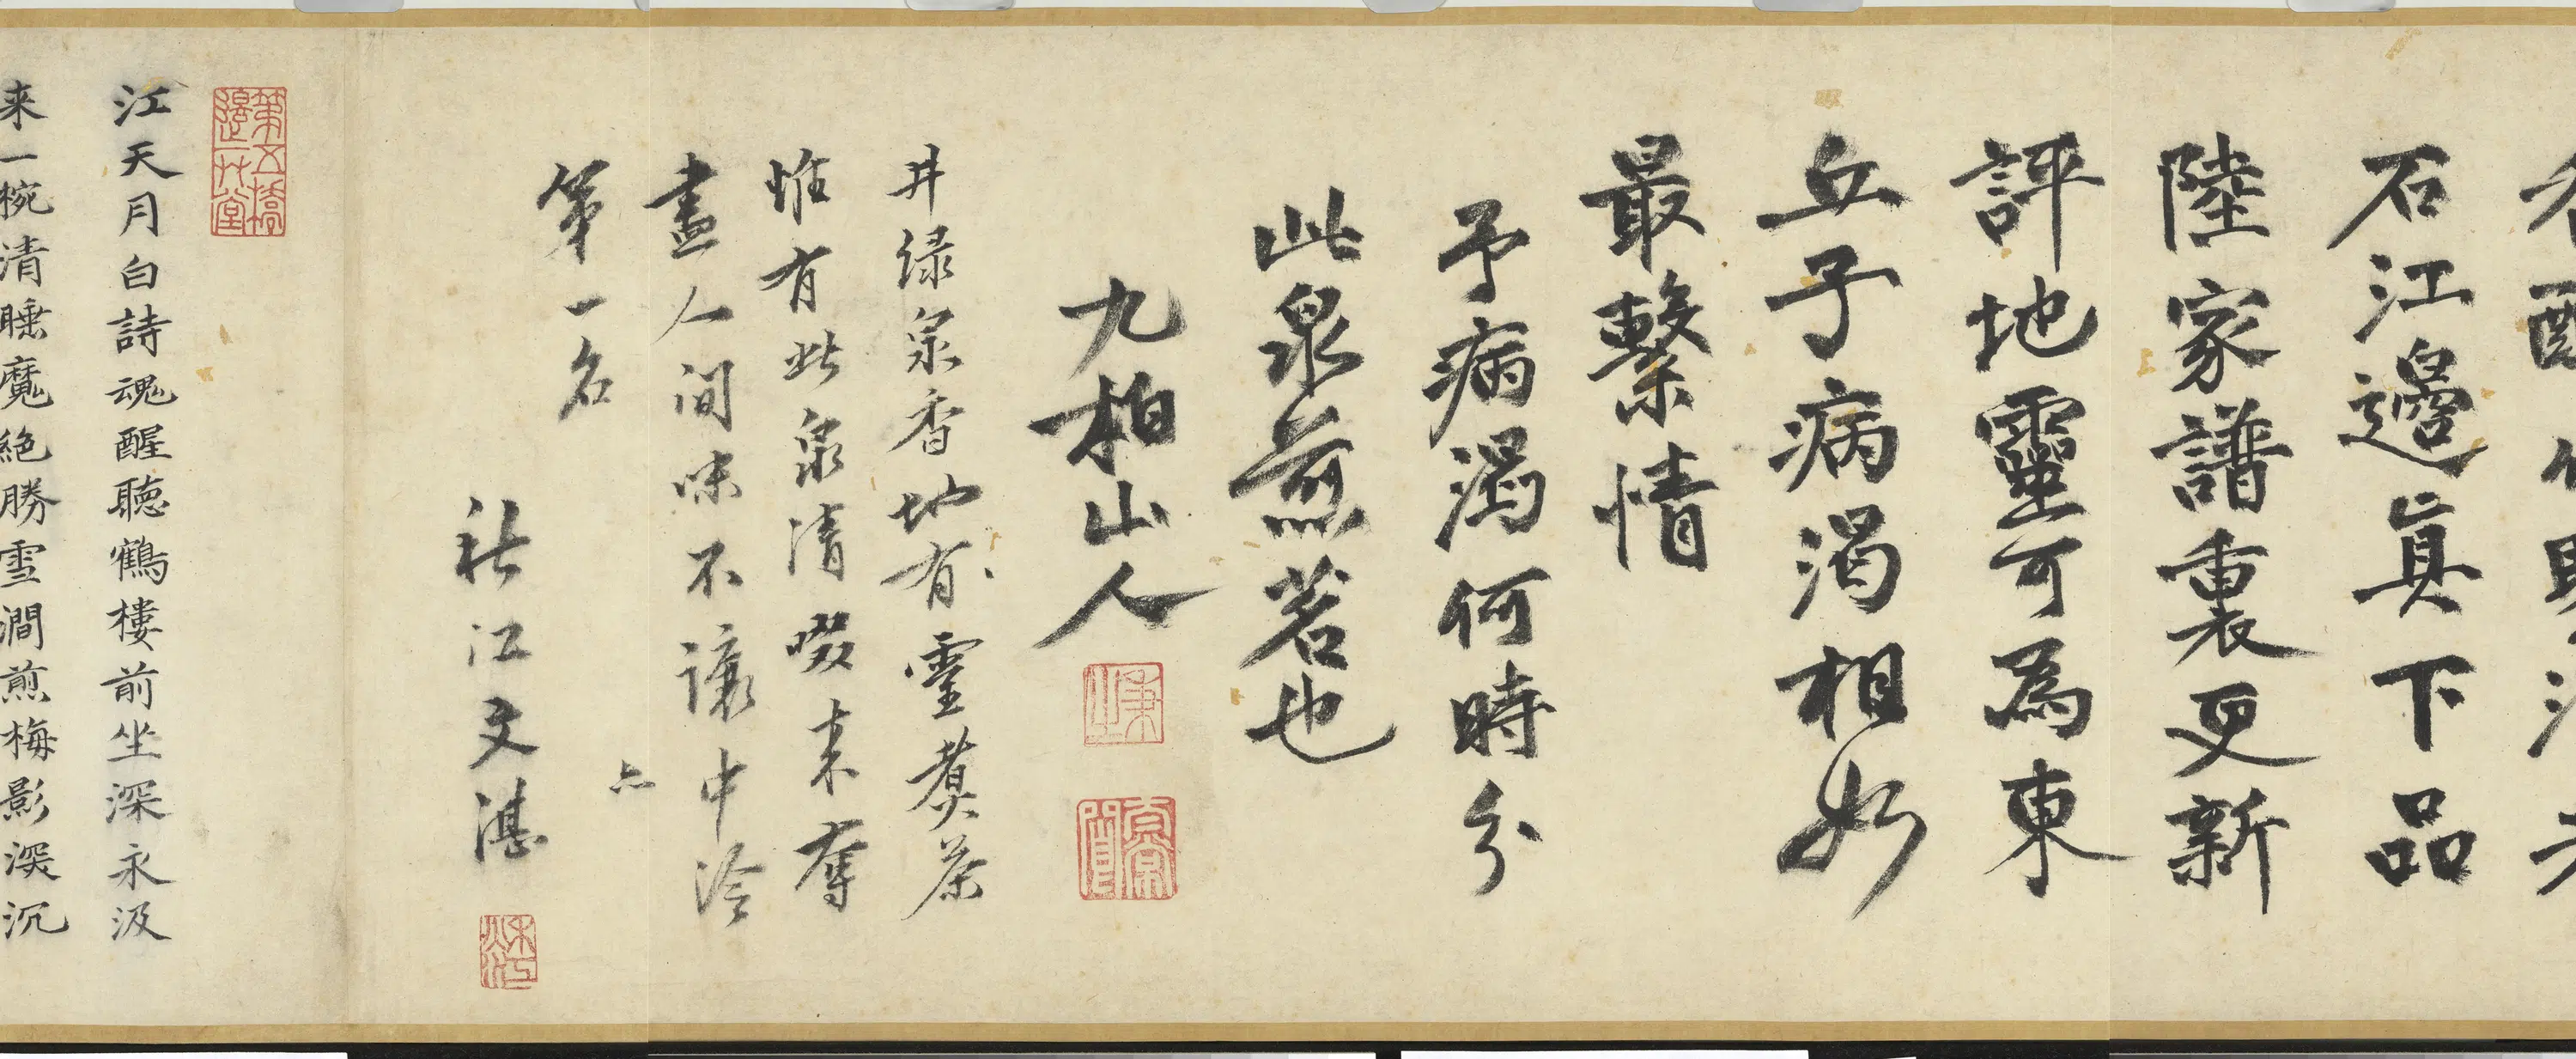 石江邊真下品
陸家譜裏更新
評地靈可為東
丘子病渴相如
最繫情
予病渴何時分
此泉煎茗也
九柏山人
井緑泉香地有靈煑茶
惟有此泉清啜来奪
盡人间味不讓中泠
第一名
秋江文湛
第五橋
隱草堂
江天月白詩魂醒聽鶴樓前坐深永汲
来一椀清睡魔絶勝雪澗煎梅影深沉